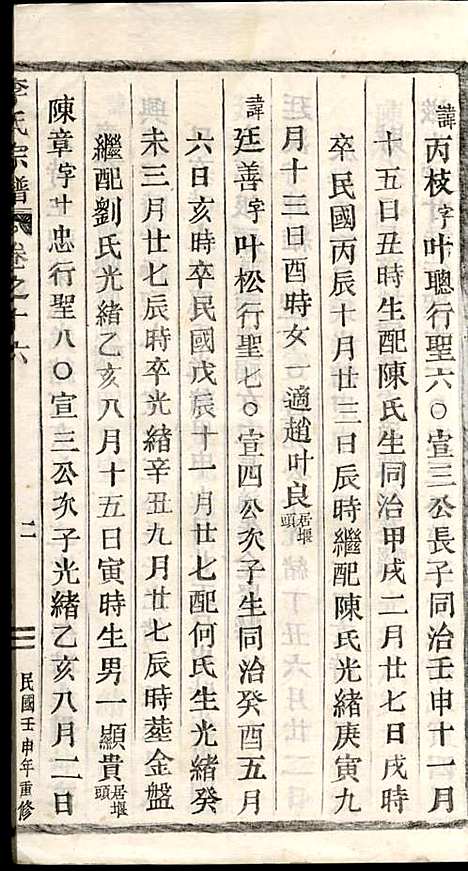 諱丙枝字叶聰行聖六〇宣三公長子同治壬申十一月
十五日丑時生配陳氏生同治甲戌二月廿七日戌時
卒民國丙辰十月廿三日辰時繼配陳氏光緒庚寅九
月十三日酉時女一適趙叶良居堰頭
諱廷善字叶松行聖七〇宣四公次子生同治癸酉五月
六日亥時卒民國戊辰十一月廿七配何氏生光緒癸
未三月廿七辰時卒光緒辛丑九月廿七辰時塟金盤
繼配劉氏光緒乙亥八月十五日寅時生男一顯貴居堰頭
陳章字叶忠行聖八〇宣三公次子光緒乙亥八月二日
李氏宗譜 卷之十六 二 民國壬申年重修